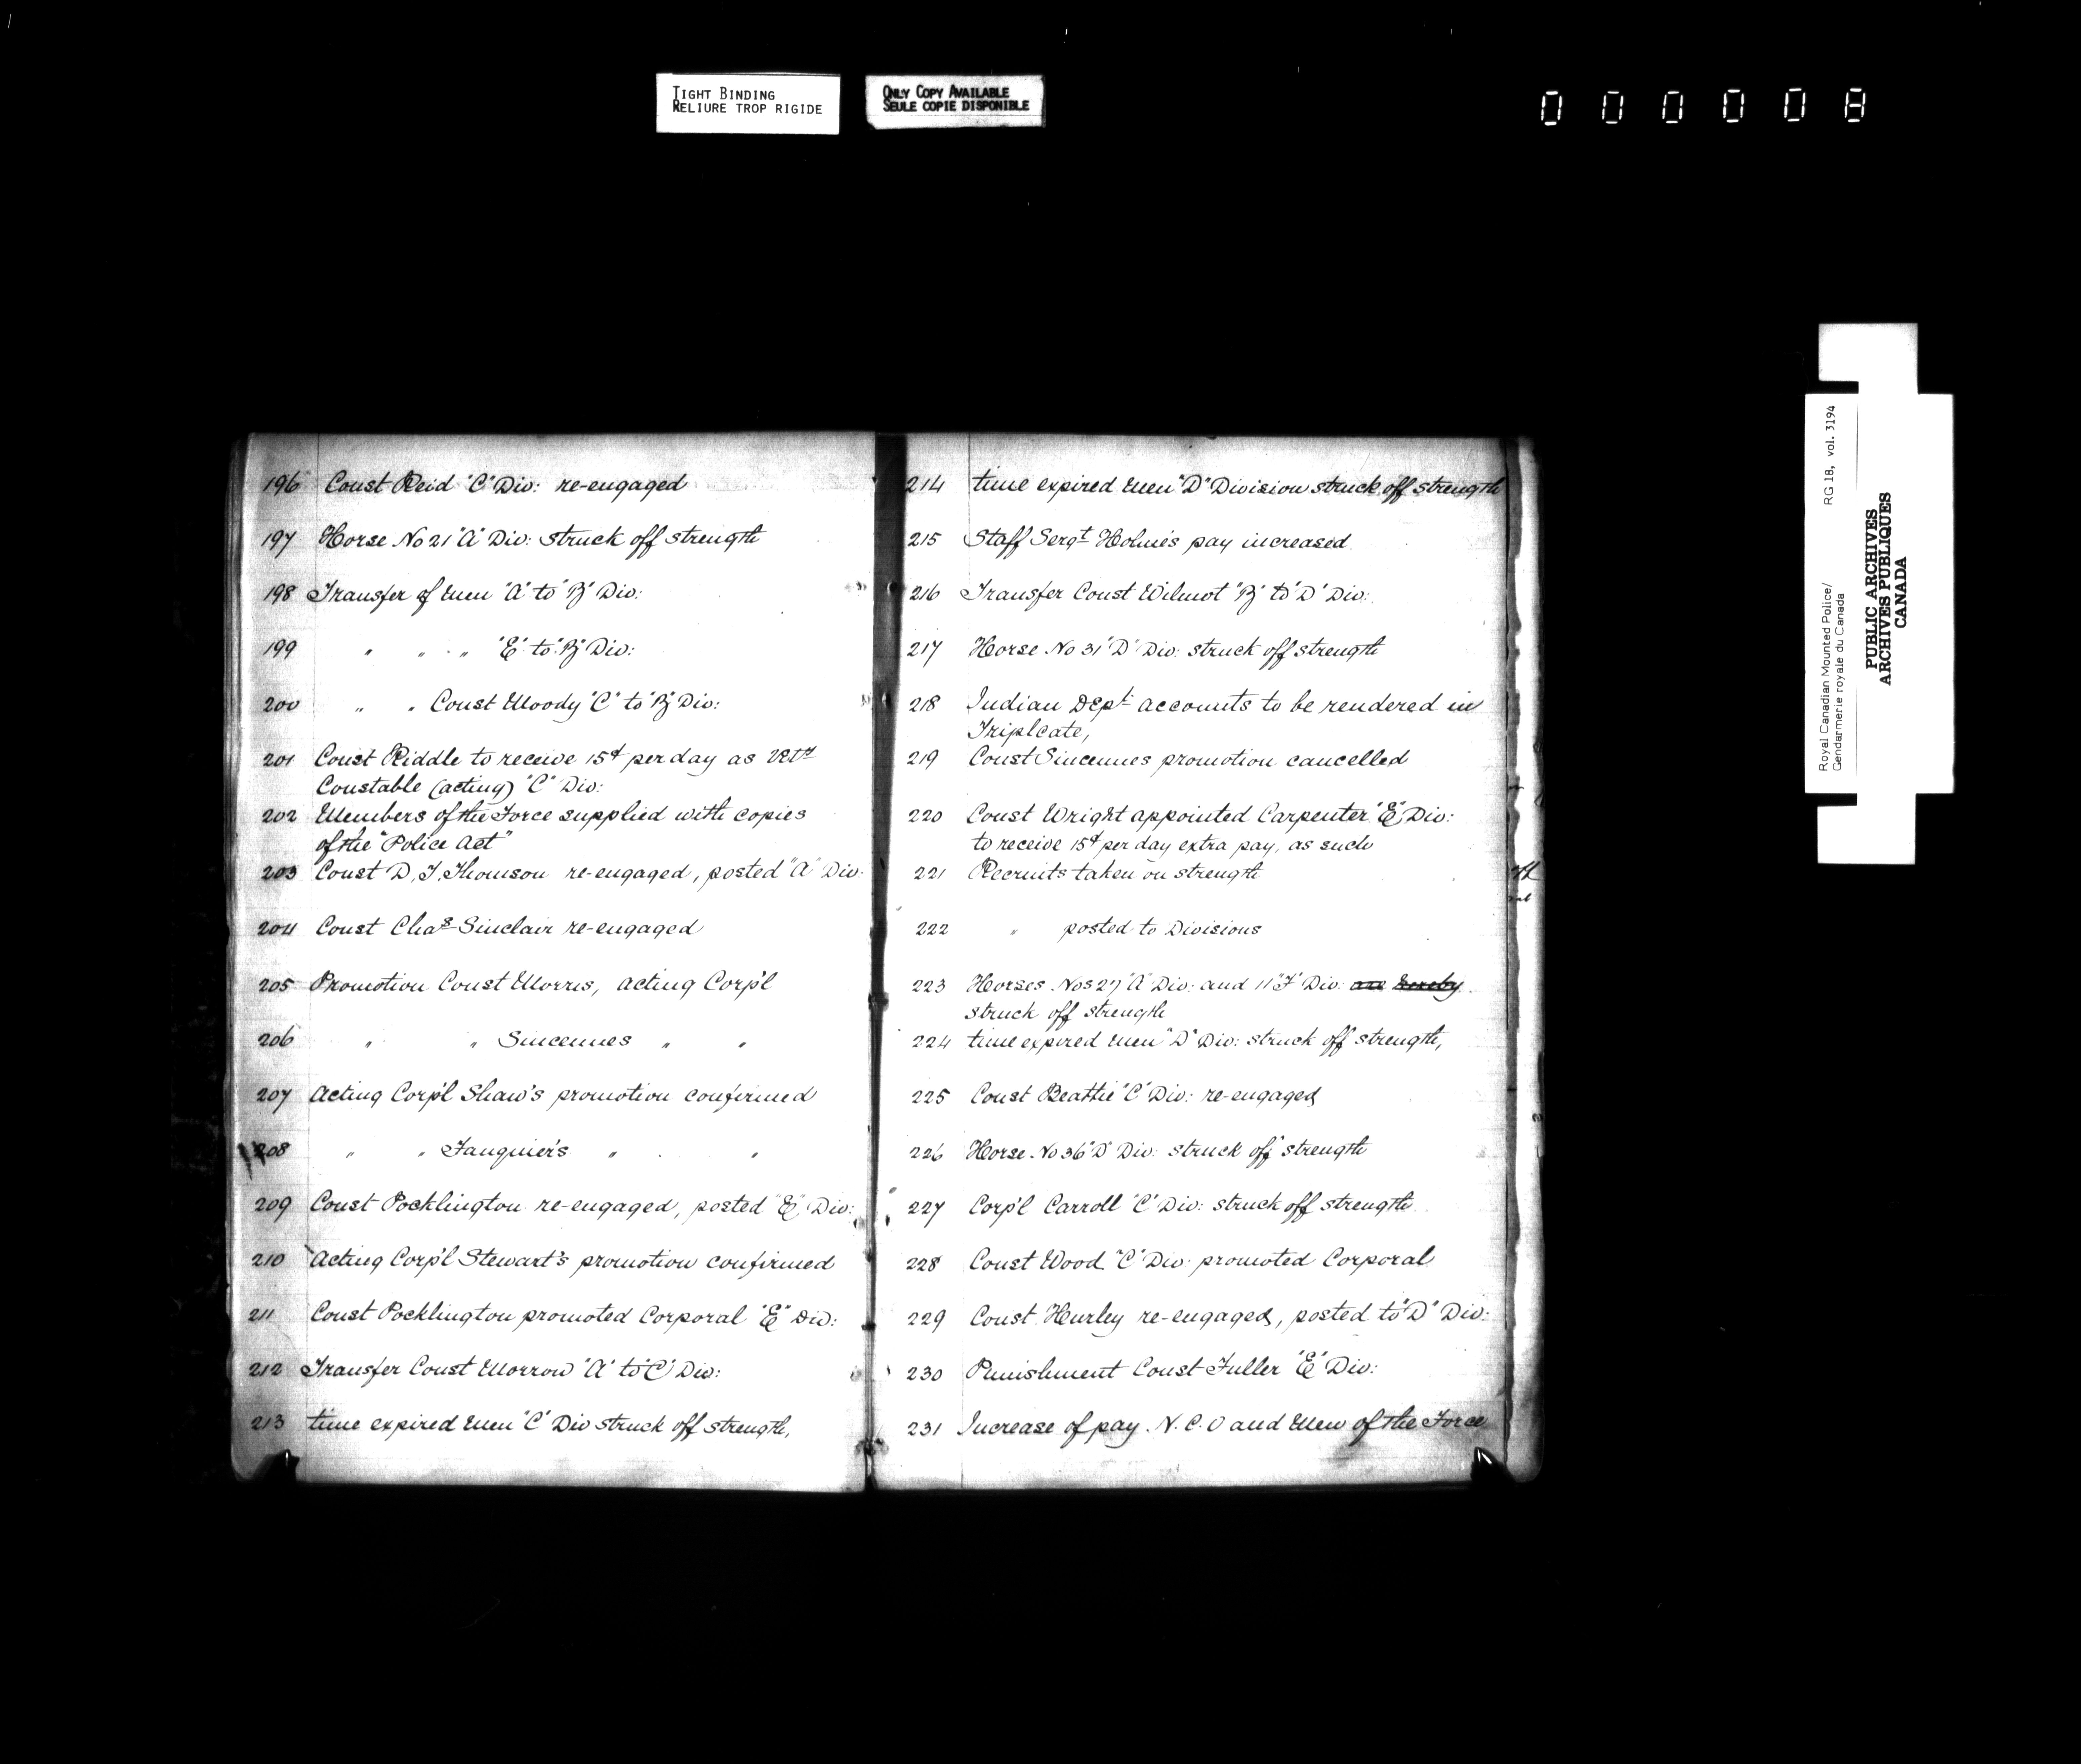 TIGHT BINDING
RELIURE TROP RIGIDE
ONLY COPY AVAILABLE
SEULE COPIE DISPONIBLE
000008
196 Const Reid "C" Div: re-engaged
197 Horse No 21 "A" Div: struck off strength
198 Transfer of Men "A" to "B" Div:
199 " " " "E" to "B" Div:
200 " " Const Moody "C" to "B" Div:
201 Const Riddle to receive 15¢ per day as
Constable (acting) "C" Div:
202 Members of the Force supplied with copies
of the "Police Act"
203 Const D. J. Thomson re-engaged, posted "A" Div:
204 Const Chas Sinclair re-engaged
205 Promotion Const Morris, acting Corp'l
206 " " Sincennes " "
207 Acting Corp'l Shaw's promotion confirmed
208 " " Fauquier's " "
209 Const Pocklington re-engaged, posted "E" Div:
210 Acting Corp'l Stewart's promotion confirmed
211 Const Pocklington promoted Corporal "E" Div:
212 Transfer Const Morrow "A" to "C" Div:
213 time expired Men "C" Div struck off strength,
214 time expired Men "D" Division struck off strength
215 Staff Sergt Holme's pay increased
216 Transfer Const Wilmot "B" to "D" Div:
217 Horse No 31 "D" Div: struck off strength
218 Indian Dept accounts to be rendered in
Triplcate,
219 Const Sincennes promotion cancelled
220 Const Wright appointed Carpenter "E" Div:
to receive 15¢ per day extra pay, as such
221 Recruits taken on strength
222 " posted to Divisions
223 Horses Nos 27 "A" Div: and 11 "F" Div: are hereby
struck off strength
224 time expired men "D" Div: struck off strength,
225 Const Beattie "C" Div: re-engaged
226 Horse No 36 "D" Div: struck off strength
227 Corp'l Carroll "C" Div: struck off strength
228 Const Wood "C" Div promoted Corporal
229 Const Hurley re-engaged, posted to "D" Div:
230 Punishment Const Fuller "E" Div:
231 Increase of pay N.C.O and Men of the Force
Royal Canadian Mounted Police/
Gendarmerie royale du Canada
RG 18, vol. 3194
PUBLIC ARCHIVES
ARCHIVES PUBLIQUES
CANADA